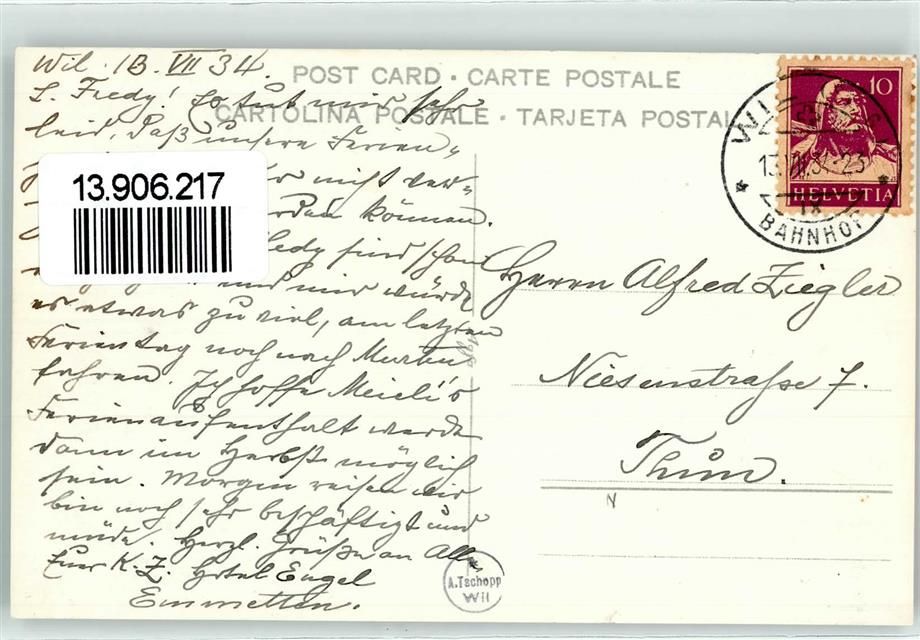 Wil. 13. VII 34.
L. Fredy! Es tut mir sehr
leid, daß unsere Ferien„
nicht ver„
werden können.
Fredy sind schon
und mir würde
es etwas zu viel, am letzten
Ferientag noch nach Murten
fahren. Ich hoffe Meieli's
Ferienaufenthalt werde
dann im Herbst möglich
sein. Morgen reisen wir
bin noch sehr beschäftigt und
müde. Herzl. Grüße an Alle
Euer K. Z. Hotel Engel
Emmetten.
POST CARD · CARTE POSTALE
CARTOLINA POSTALE · TARJETA POSTAL
13.906.217
10
HELVETIA
13.VII.34-23
BAHNHOF
Herrn Alfred Ziegler
Niesenstraße 7.
Thun.
A. Tschopp
Wil